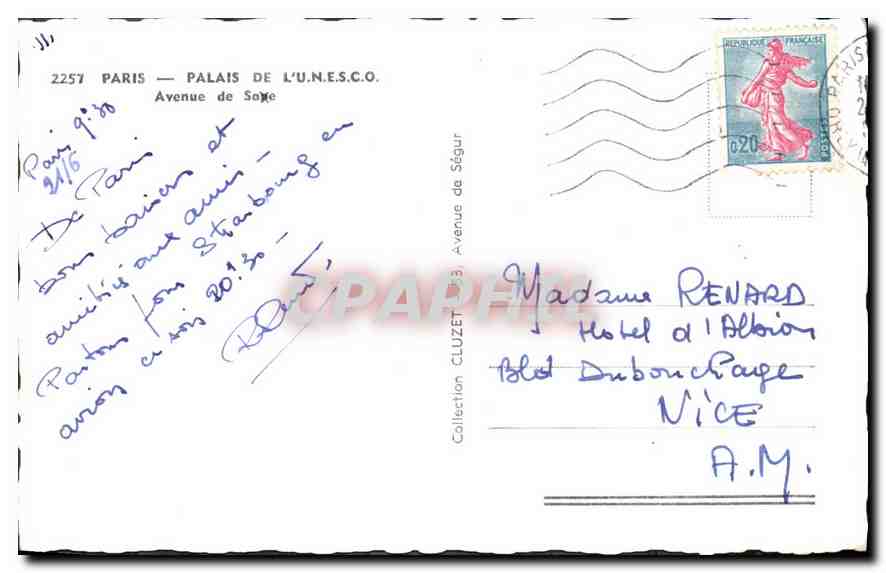 2257 PARIS — PALAIS DE L'U.N.E.S.C.O.
Avenue de Saxe
Paris 9h30
21/6
De Paris
bons baisers et
amitiés aux amis —
Partons pour Strasbourg en
avion ce soir 20h30 —
Collection CLUZET 53, Avenue de Ségur
REPUBLIQUE FRANÇAISE
0,20
POSTES
PARIS
Madame RENARD
Hotel d'Albion
Bld Dubouchage
NICE
A.M.
CPAPHIL